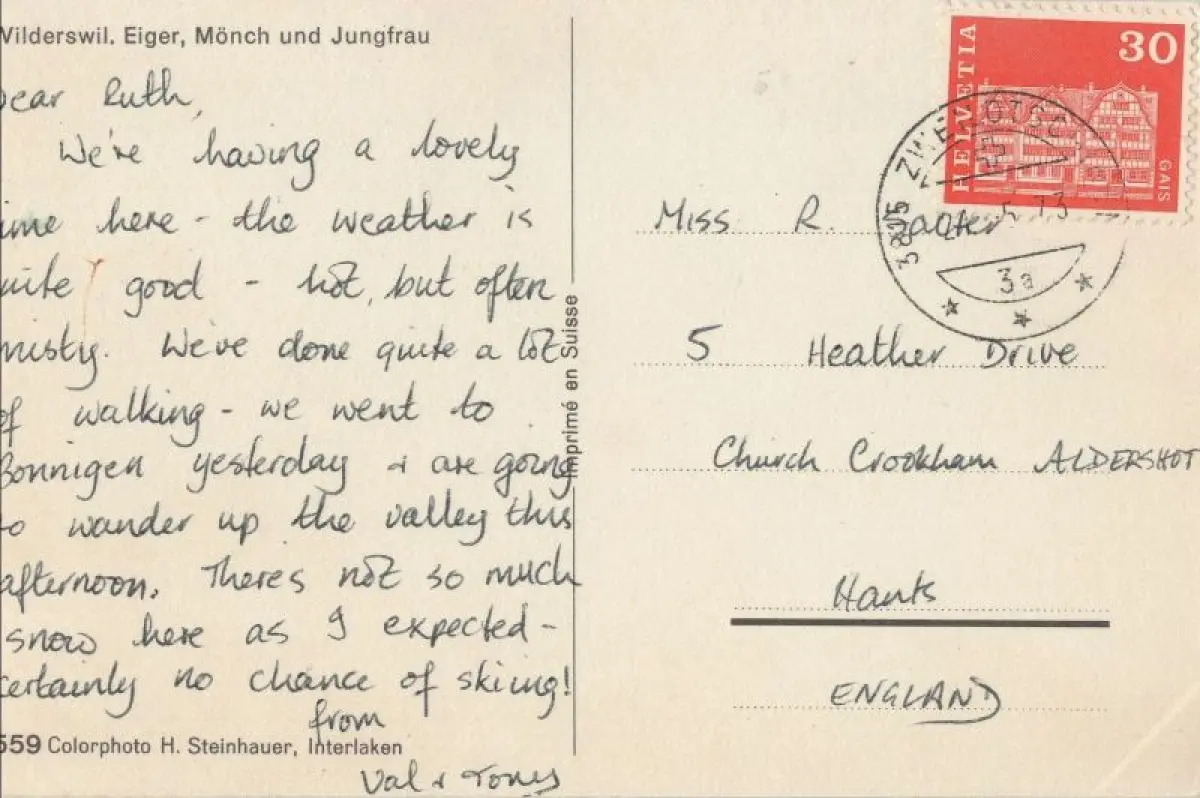 Wilderswil. Eiger, Mönch und Jungfrau
Dear Ruth,
We're having a lovely
time here - the weather is
quite good - hot, but often
misty. We've done quite a lot
of walking - we went to
Bonnigen yesterday + are going
to wander up the valley this
afternoon. There's not so much
snow here as I expected -
certainly no chance of skiing!
from
Val + Tony
559 Colorphoto H. Steinhauer, Interlaken
Imprimé en Suisse
HELVETIA
30
GAIS
3815
5.73
3a
Miss R.
5 Heather Drive
Church Crookham ALDERSHOT
Hants
ENGLAND